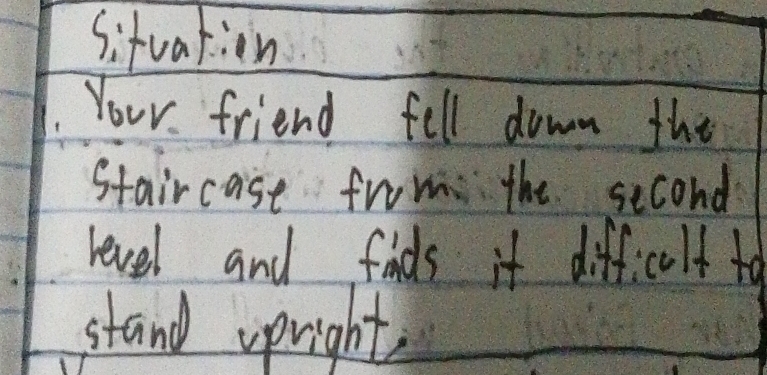 Situation
1. Your friend fell down the
staircase from the second
level and finds it difficult to
stand upright.